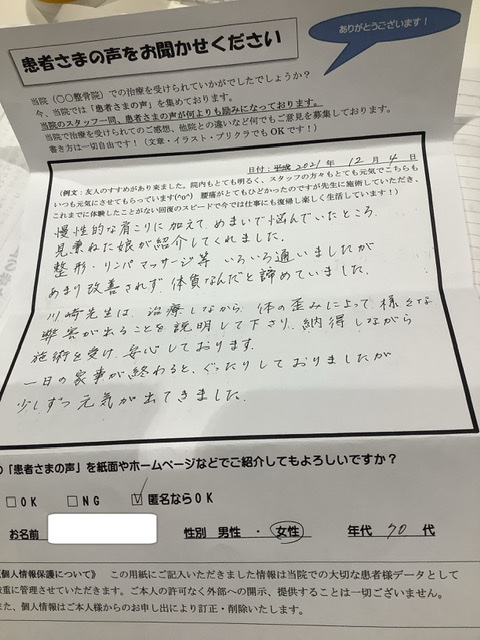 患者さまの声をお聞かせください
ありがとうございます！
当院（〇〇整骨院）での治療を受けられていかがでしたでしょうか？
今、当院では「患者さまの声」を集めております。
当院のスタッフ一同、患者さまの声が何よりも励みになっております。
当院で治療を受けられてのご感想、他院との違いなど何でもご意見を募集しております。
書き方は一切自由です！（文章・イラスト・プリクラでもOKです！）
日付：平成 2021 年 12 月 4 日
（例文：友人のすすめがあり来ました。院内もとても明るく、スタッフの方々もとても元気でこちらも
いつも元気にさせてもらっています(^o^) 腰痛がとてもひどかったのですが先生に施術していただき、
これまでに体験したことがない回復のスピードで今では仕事にも復帰し楽しく生活しています！）
慢性的な肩こりに加えて、めまいで悩んでいたところ、
見兼ねた娘が紹介してくれました。
整形・リンパマッサージ等いろいろ通いましたが
あまり改善されず、体質なんだと諦めていました。
川崎先生は、治療しながら、体の歪みによって、様々な
弊害が出ることを説明して下さり、納得しながら
施術を受け、安心しております。
一日の家事が終わると、ぐったりしておりましたが
少しずつ元気が出てきました。
の「患者さまの声」を紙面やホームページなどでご紹介してもよろしいですか？
□OK □NG ☑匿名ならOK
お名前 性別 男性 ・ 女性 年代 70 代
個人情報保護について》 この用紙にご記入いただきました情報は当院での大切な患者様データとして
重に管理させていただきます。ご本人の許可なく外部への開示、提供することは一切ございません。
また、個人情報はご本人様からのお申し出により訂正・削除いたします。